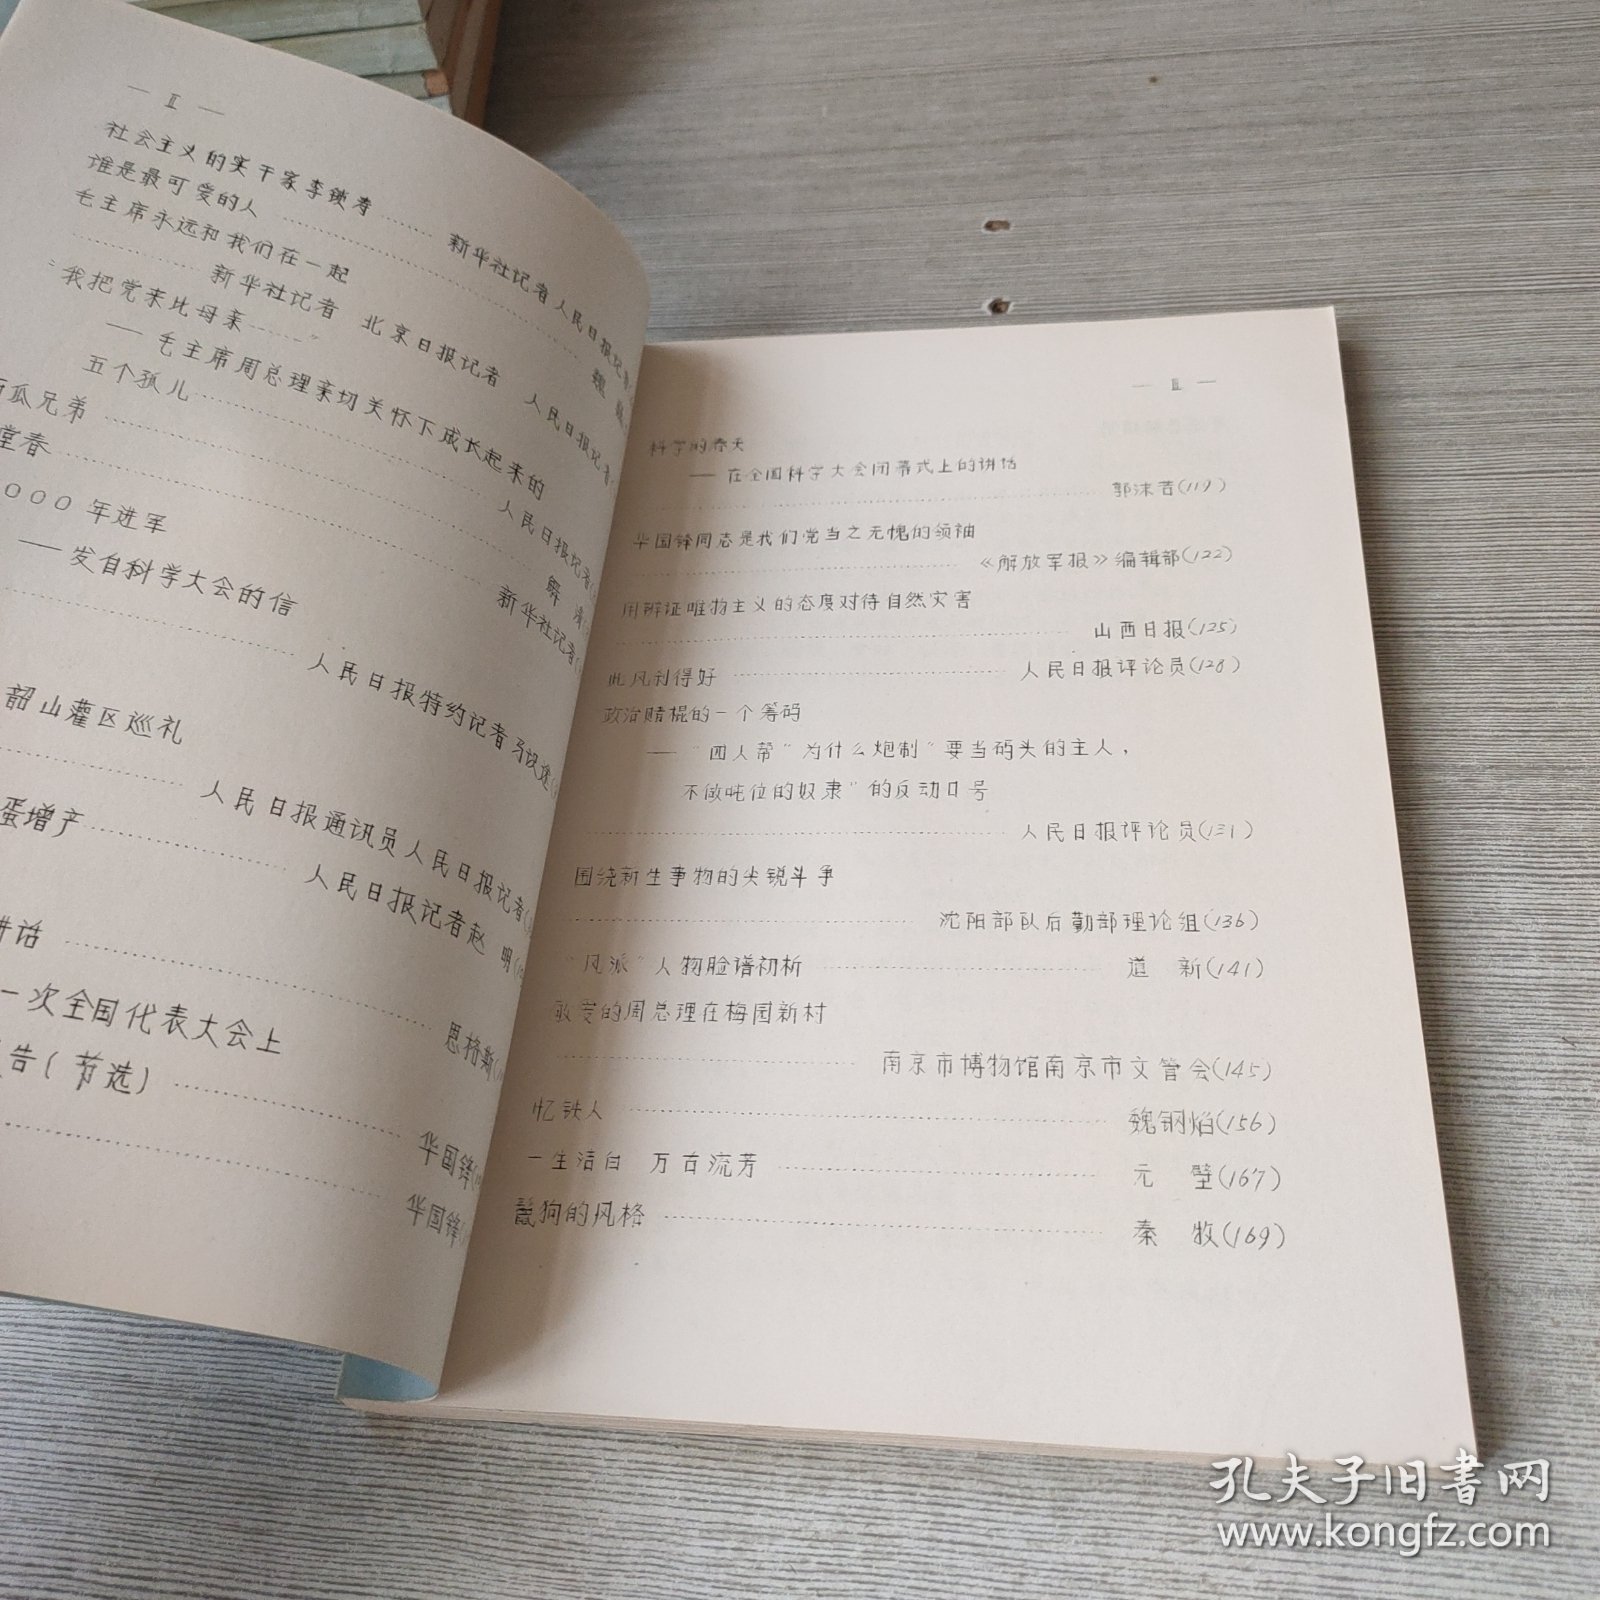 — Ⅱ —
社会主义的实干家李锁寿 …… 新华社记者 人民日报记者(
谁是最可爱的人 …… 魏 巍
毛主席永远和我们在一起
…… 新华社记者 北京日报记者 人民日报记者(
“我把党来比母亲……”
——毛主席周总理亲切关怀下成长起来的
五个孤儿 …… 人民日报记者(
瓜兄弟 …… 解
堂春 …… 新华社记者(
000年进军
——发自科学大会的信
…… 人民日报特约记者 马识途(
韶山灌区巡礼
…… 人民日报通讯员 人民日报记者(
蛋增产 …… 人民日报记者赵 明(
讲话 …… 恩格斯(
一次全国代表大会上
告(节选) …… 华国锋(
…… 华国锋(
— Ⅲ —
科学的春天
——在全国科学大会闭幕式上的讲话
…… 郭沫若(119)
华国锋同志是我们党当之无愧的领袖
…… 《解放军报》编辑部(122)
用辨证唯物主义的态度对待自然灾害
…… 山西日报(125)
此风刹得好 …… 人民日报评论员(128)
政治赌棍的一个筹码
——“四人帮”为什么炮制“要当码头的主人，
不做吨位的奴隶”的反动口号
…… 人民日报评论员(131)
围绕新生事物的尖锐斗争
…… 沈阳部队后勤部理论组(136)
“风派”人物脸谱初析 …… 道 新(141)
敬爱的周总理在梅园新村
…… 南京市博物馆南京市文管会(145)
忆铁人 …… 魏钢焰(156)
一生洁白 万古流芳 …… 元 壁(167)
鬣狗的风格 …… 秦 牧(169)
孔夫子旧书网
www.kongfz.com